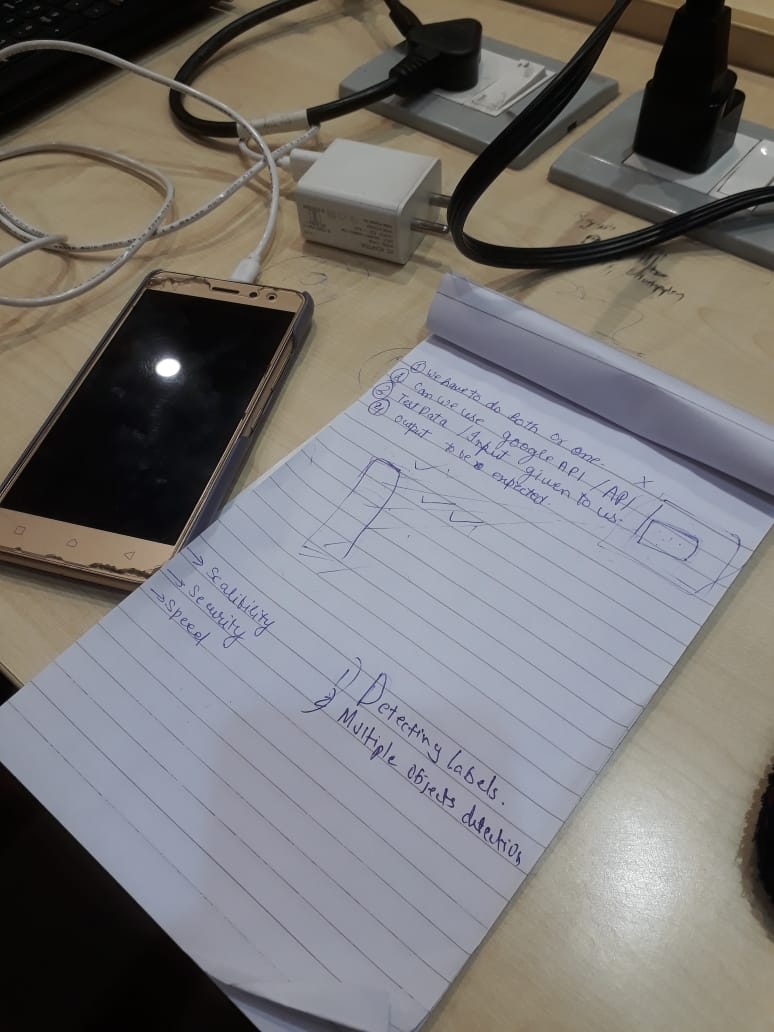 ① We have to do both or one.
② Can we use google API / API X
③ Test Data / Input given to us.
④ output to be expected.
→ Scalibility
→ Security
→ Speed
1) Detecting labels.
2) Multiple objects detection